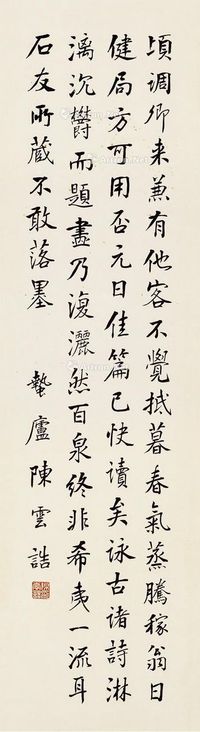 頃調卿来兼有他客不覺抵暮春氣蒸騰稼翁日
健局方可用否元日佳篇已快讀矣詠古诸詩淋
漓沉欝而題畫乃澓灑然百泉终非希夷一流耳
石友所蔵不敢落墨 蟄廬陳雲誥